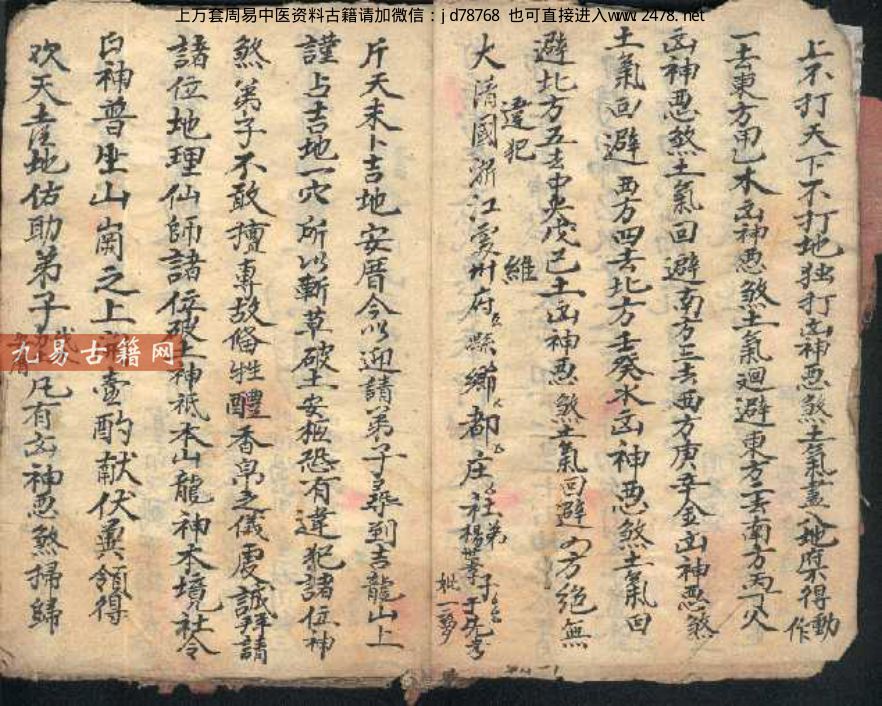 上万套周易中医资料古籍请加微信：jd78768 也可直接进入www.2478.net
上不打天下不打地独打凶神恶煞土氣畫地界得動作
一去東方甲乙木凶神恶煞土氣廻避東方二去南方丙丁火
凶神恶煞土氣回避南方三去西方庚辛金凶神恶煞
土氣回避 西方四去北方壬癸水凶神恶煞土氣回
避北方五去中央戊己土凶神恶煞土氣回避 方绝無
違犯 維
大清國浙江處州府 縣 鄉 都 庄 社 弟子
斤天未卜吉地安厝今以迎請弟子尋到吉龍山上
謹占吉地一穴所以斬草破土安柩恐有違犯諸位神
煞弟子不敢擅專故俻牲醴香帛之儀虔誠拜請
諸位地理仙師諸位破土神祇本山龍神本境社令
白神普坐山崗之上 壺酌献伏兾領得
欢天土地佑助弟子 凡有凶神恶煞掃歸
九易古籍网